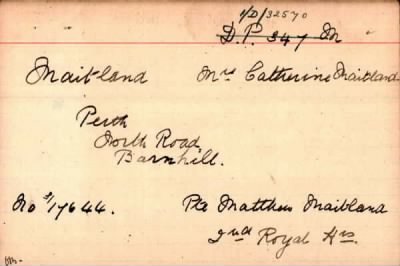 1/D/32570
D.P. 347 M
Maitland Mrs Catherine Maitland
Perth
North Road
Barnhill.
No 3/17644. Pte Matthew Maitland
2nd Royal Hrs.